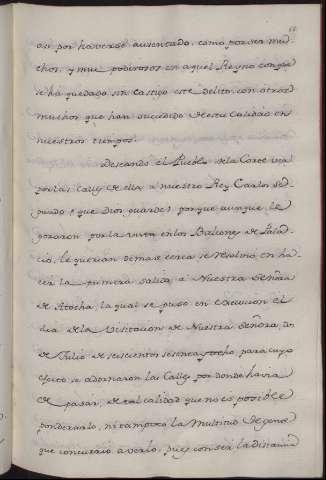 asi por haverse ausentado, como por ser mu-
chos, y muy poderosos en aquel Reyno con que
se ha quedado sin castigo este delito, con otros
muchos que han sucedido de esta calidad en
nuestros tiempos.
Deseando el Pueblo de la Corte ver
por las calles de ella a nuestro Rey Carlos se-
gundo (que Dios guarde) porque aunque le
gozaron por la vista en los Balcones de Pala-
cio, le querian de mas cerca se resolvio en ha-
cer la primera salida a Nuestra Señora
de Atocha, la qual se puso en execucion el
dia de la Visitacion de Nuestra Señora, dos
de Julio de seiscientos sesenta y ocho, para cuyo
efecto se adornaron las Calles por donde havia
de pasar, de tal calidad que no es posible
ponderarlo, ni tampoco la Multitud de gente
que concurrio a verlo, pues con ser la distancia